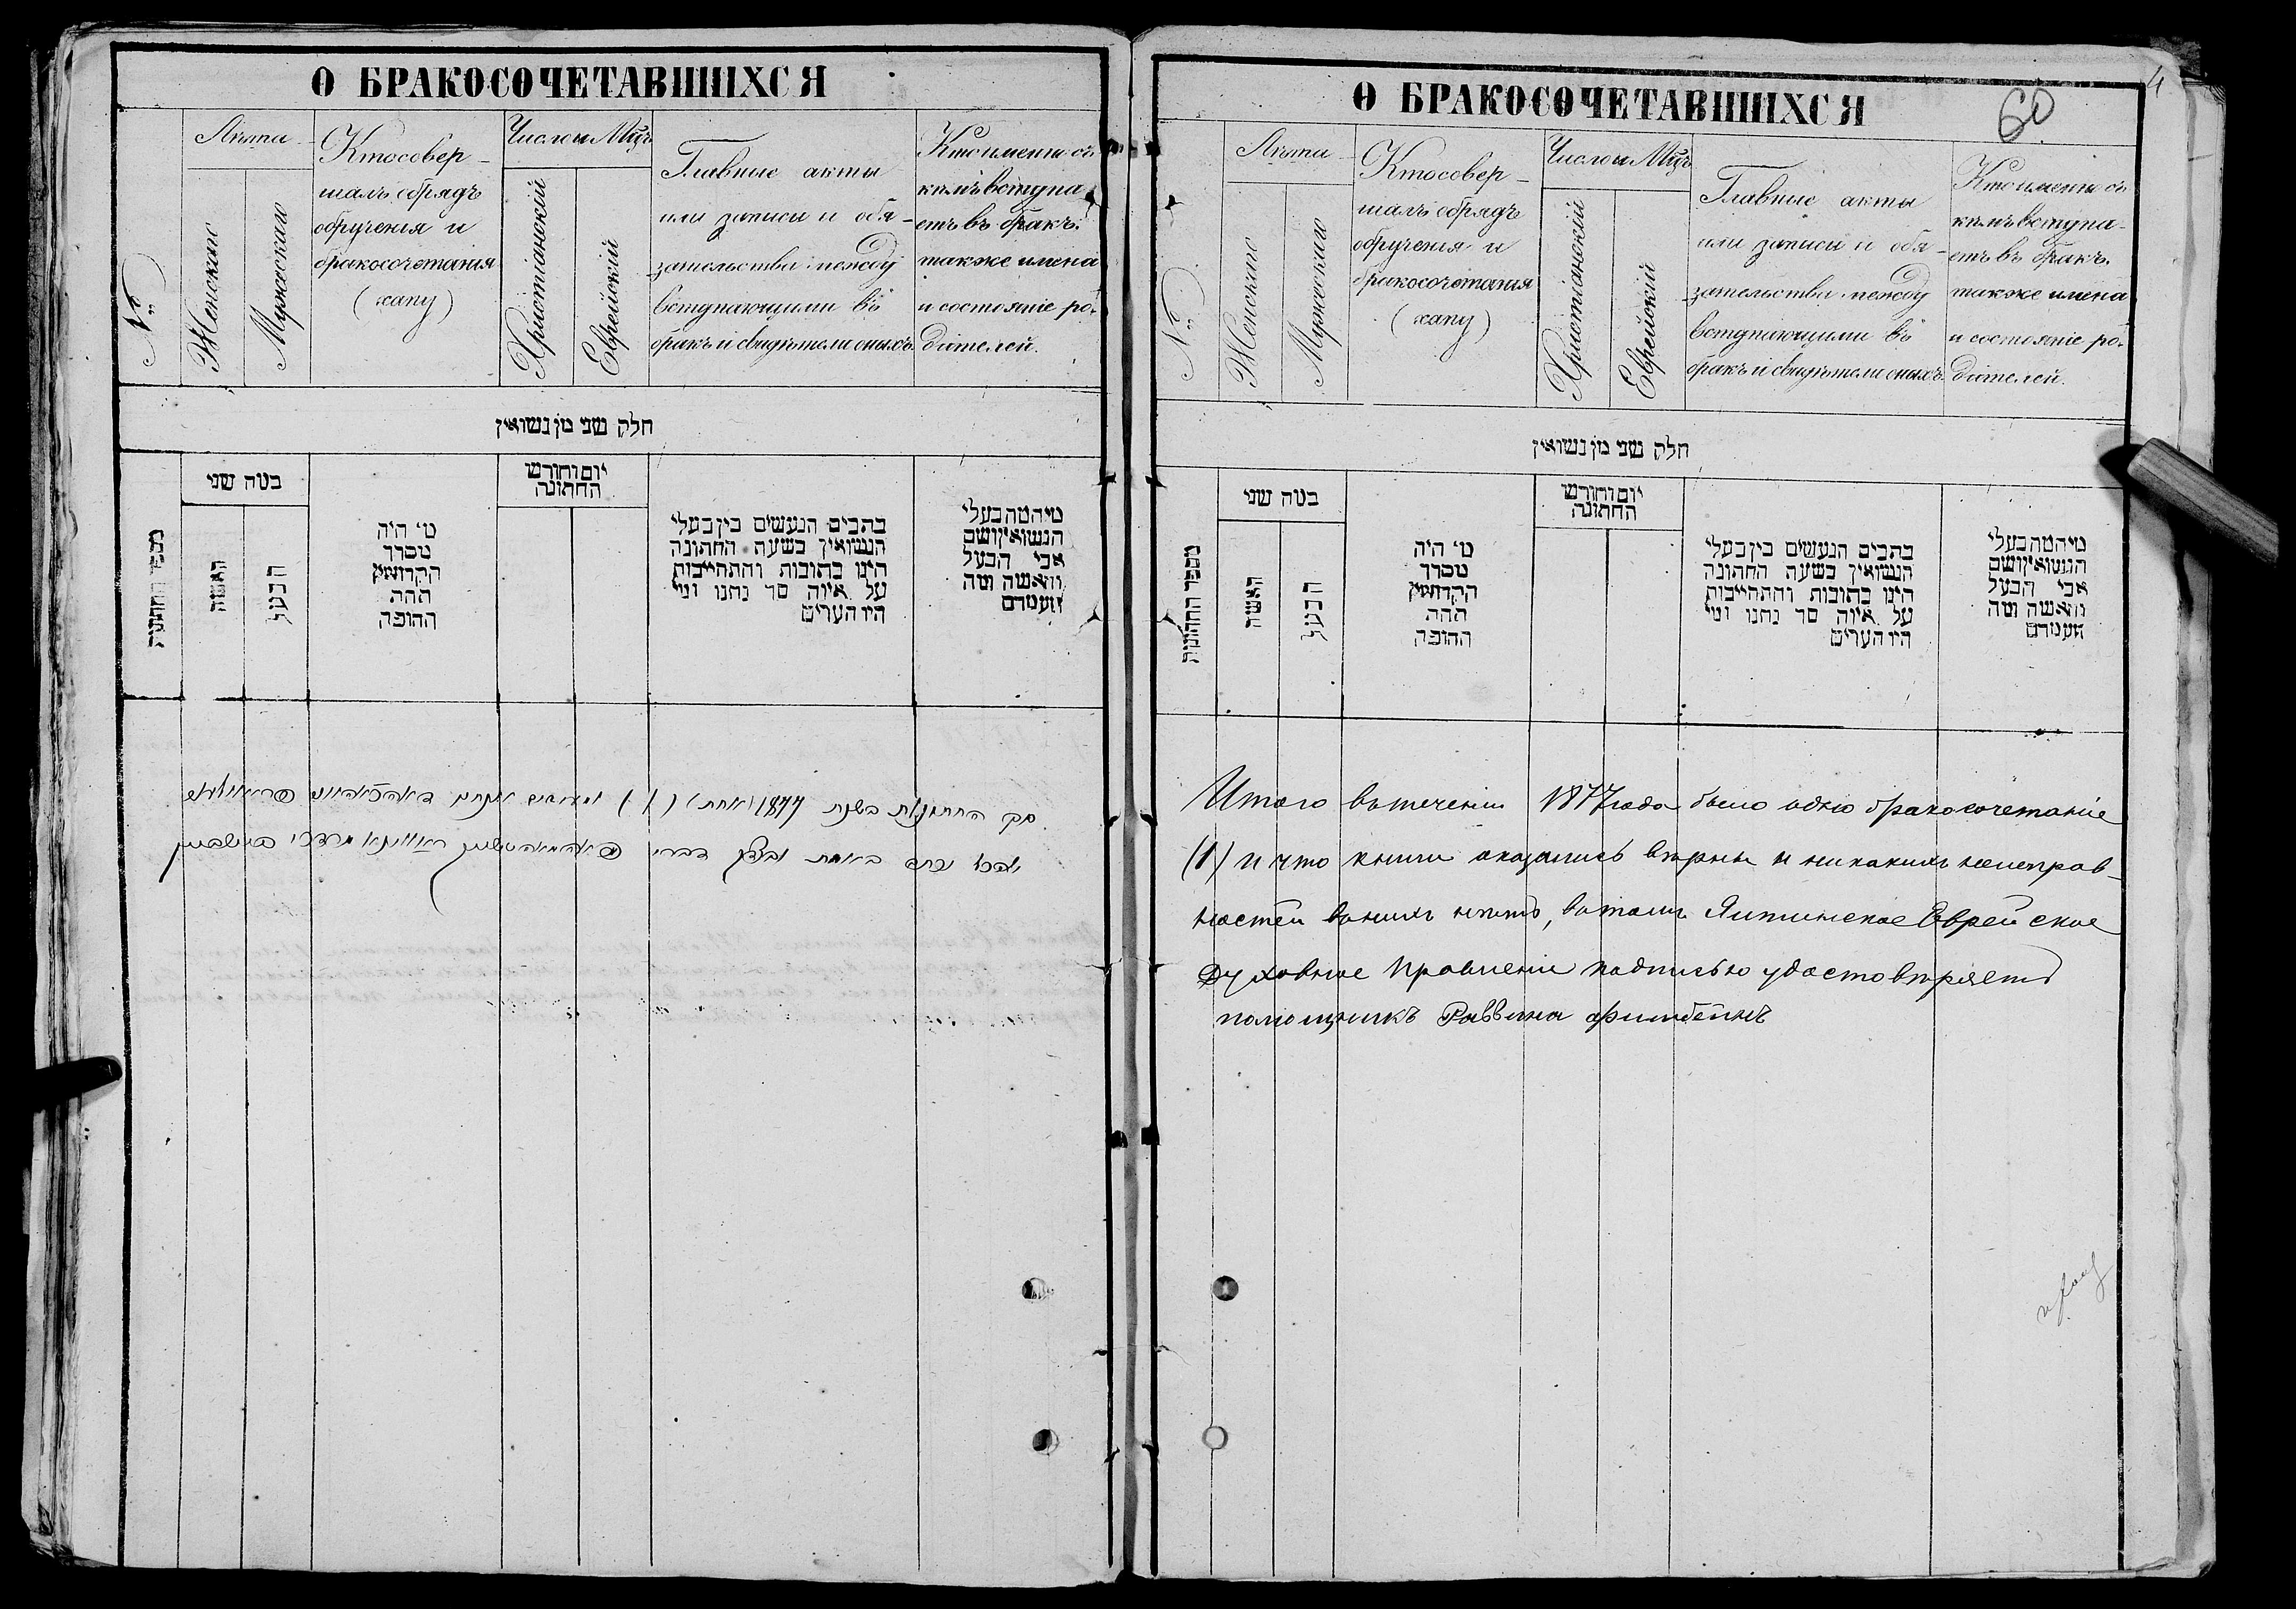 О БРАКОСОЧЕТАВШИХСЯ
№
Лѣта
Женскаго
Мужскаго
Кто совер-
шалъ обрядъ
обрученія и
бракосочетанія
(хапу)
Число и Мцъ
Христіанскій
Еврейскій
Главные акты
или записи и обя-
зательства между
вступающими въ
бракъ и свидѣтели оныхъ.
Кто именно съ
кѣмъ вступа
етъ въ бракъ.
также имена
и состояніе ро-
дителей.
חלק שני מן נשואין
מספר החתונות
כמה שני
האשה
הבעל
מי היה
מסדר
הקדושין
תחת
החופה
יום וחודש
החתונה
כתבים הנעשים בין בעלי
הנשואין בשעת החתונה
היינו כתובות והתחייבות
על איזה סך נתנו ומי
היו העדים
מי המה בעלי
הנשואין ושם
אבי הבעל
והאשה ומה
מעמדם
סך החתונות בשנת 1877 (אחת) (1)
והכל נכתב באמת ובצדק דברי
О БРАКОСОЧЕТАВШИХСЯ
60
№
Лѣта
Женскаго
Мужскаго
Кто совер-
шалъ обрядъ
обрученія и
бракосочетанія
(хапу)
Число и Мцъ
Христіанскій
Еврейскій
Главные акты
или записи и обя-
зательства между
вступающими въ
бракъ и свидѣтели оныхъ.
Кто именно съ
кѣмъ вступа-
етъ въ бракъ.
также имена
и состояніе ро-
дителей.
חלק שני מן נשואין
מספר החתונות
כמה שני
האשה
הבעל
מי היה
מסדר
הקדושין
תחת
החופה
יום וחודש
החתונה
כתבים הנעשים בין בעלי
הנשואין בשעת החתונה
היינו כתובות והתחייבות
על איזה סך נתנו ומי
היו העדים
מי המה בעלי
הנשואין ושם
אבי הבעל
והאשה ומה
מעמדם
Итого въ теченіи 1877 года было одно бракосочетаніе
(1) и что книги оказались вѣрны и никакихъ неисправ-
ностей въ нихъ нѣтъ, въ томъ Еврейское
Духовное Правленіе подписью удостовѣряетъ
помощникъ Раввина